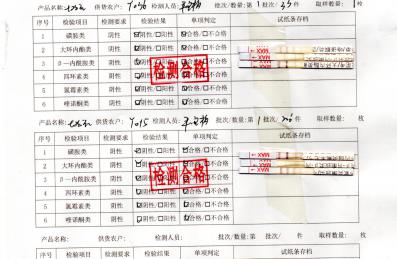 产品名称: 供货农户: Y096 检测人员: 批次/数量: 第 1 批次/ 件 取样数量: 1 枚
序号 检验项目 检测要求 检验结果 单项判定 试纸条存档
1 磺胺类 阴性 ☑阴性/□阳性 ☑合格/□不合格
2 大环内酯类 阴性 ☑阴性/□阳性 ☑合格/□不合格
3 β一内酰胺类 阴性 ☑阴性/□阳性 ☑合格/□不合格
4 四环素类 阴性 ☑阴性/□阳性 ☑合格/□不合格
5 氯霉素类 阴性 ☑阴性/□阳性 ☑合格/□不合格
6 喹诺酮类 阴性 ☑阴性/□阳性 ☑合格/□不合格
检测合格
MAX
MAX
产品名称: 供货农户: Y015 检测人员: 批次/数量: 第 1 批次/ 件 取样数量: 枚
序号 检验项目 检测要求 检验结果 单项判定 试纸条存档
1 磺胺类 阴性 ☑阴性/□阳性 ☑合格/□不合格
2 大环内酯类 阴性 ☑阴性/□阳性 ☑合格/□不合格
3 β一内酰胺类 阴性 ☑阴性/□阳性 ☑合格/□不合格
4 四环素类 阴性 ☑阴性/□阳性 ☑合格/□不合格
5 氯霉素类 阴性 ☑阴性/□阳性 ☑合格/□不合格
6 喹诺酮类 阴性 ☑阴性/□阳性 ☑合格/□不合格
检测合格
MAX
MAX
产品名称: 供货农户: 检测人员: 批次/数量: 第 批次/ 件 取样数量: 枚
序号 检验项目 检测要求 检验结果 单项判定 试纸条存档